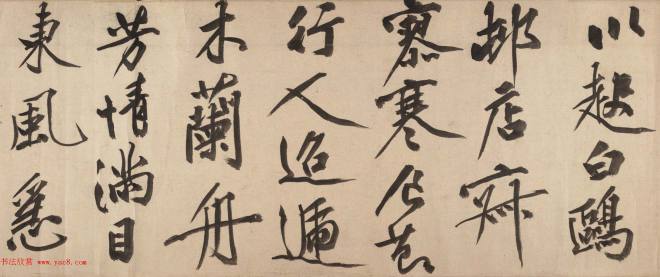 川起白鷗
邨店寂
寥寒食暮
行人迢遞
木蘭舟
芳情滿目
東風
书法欣赏 www.yac8.com